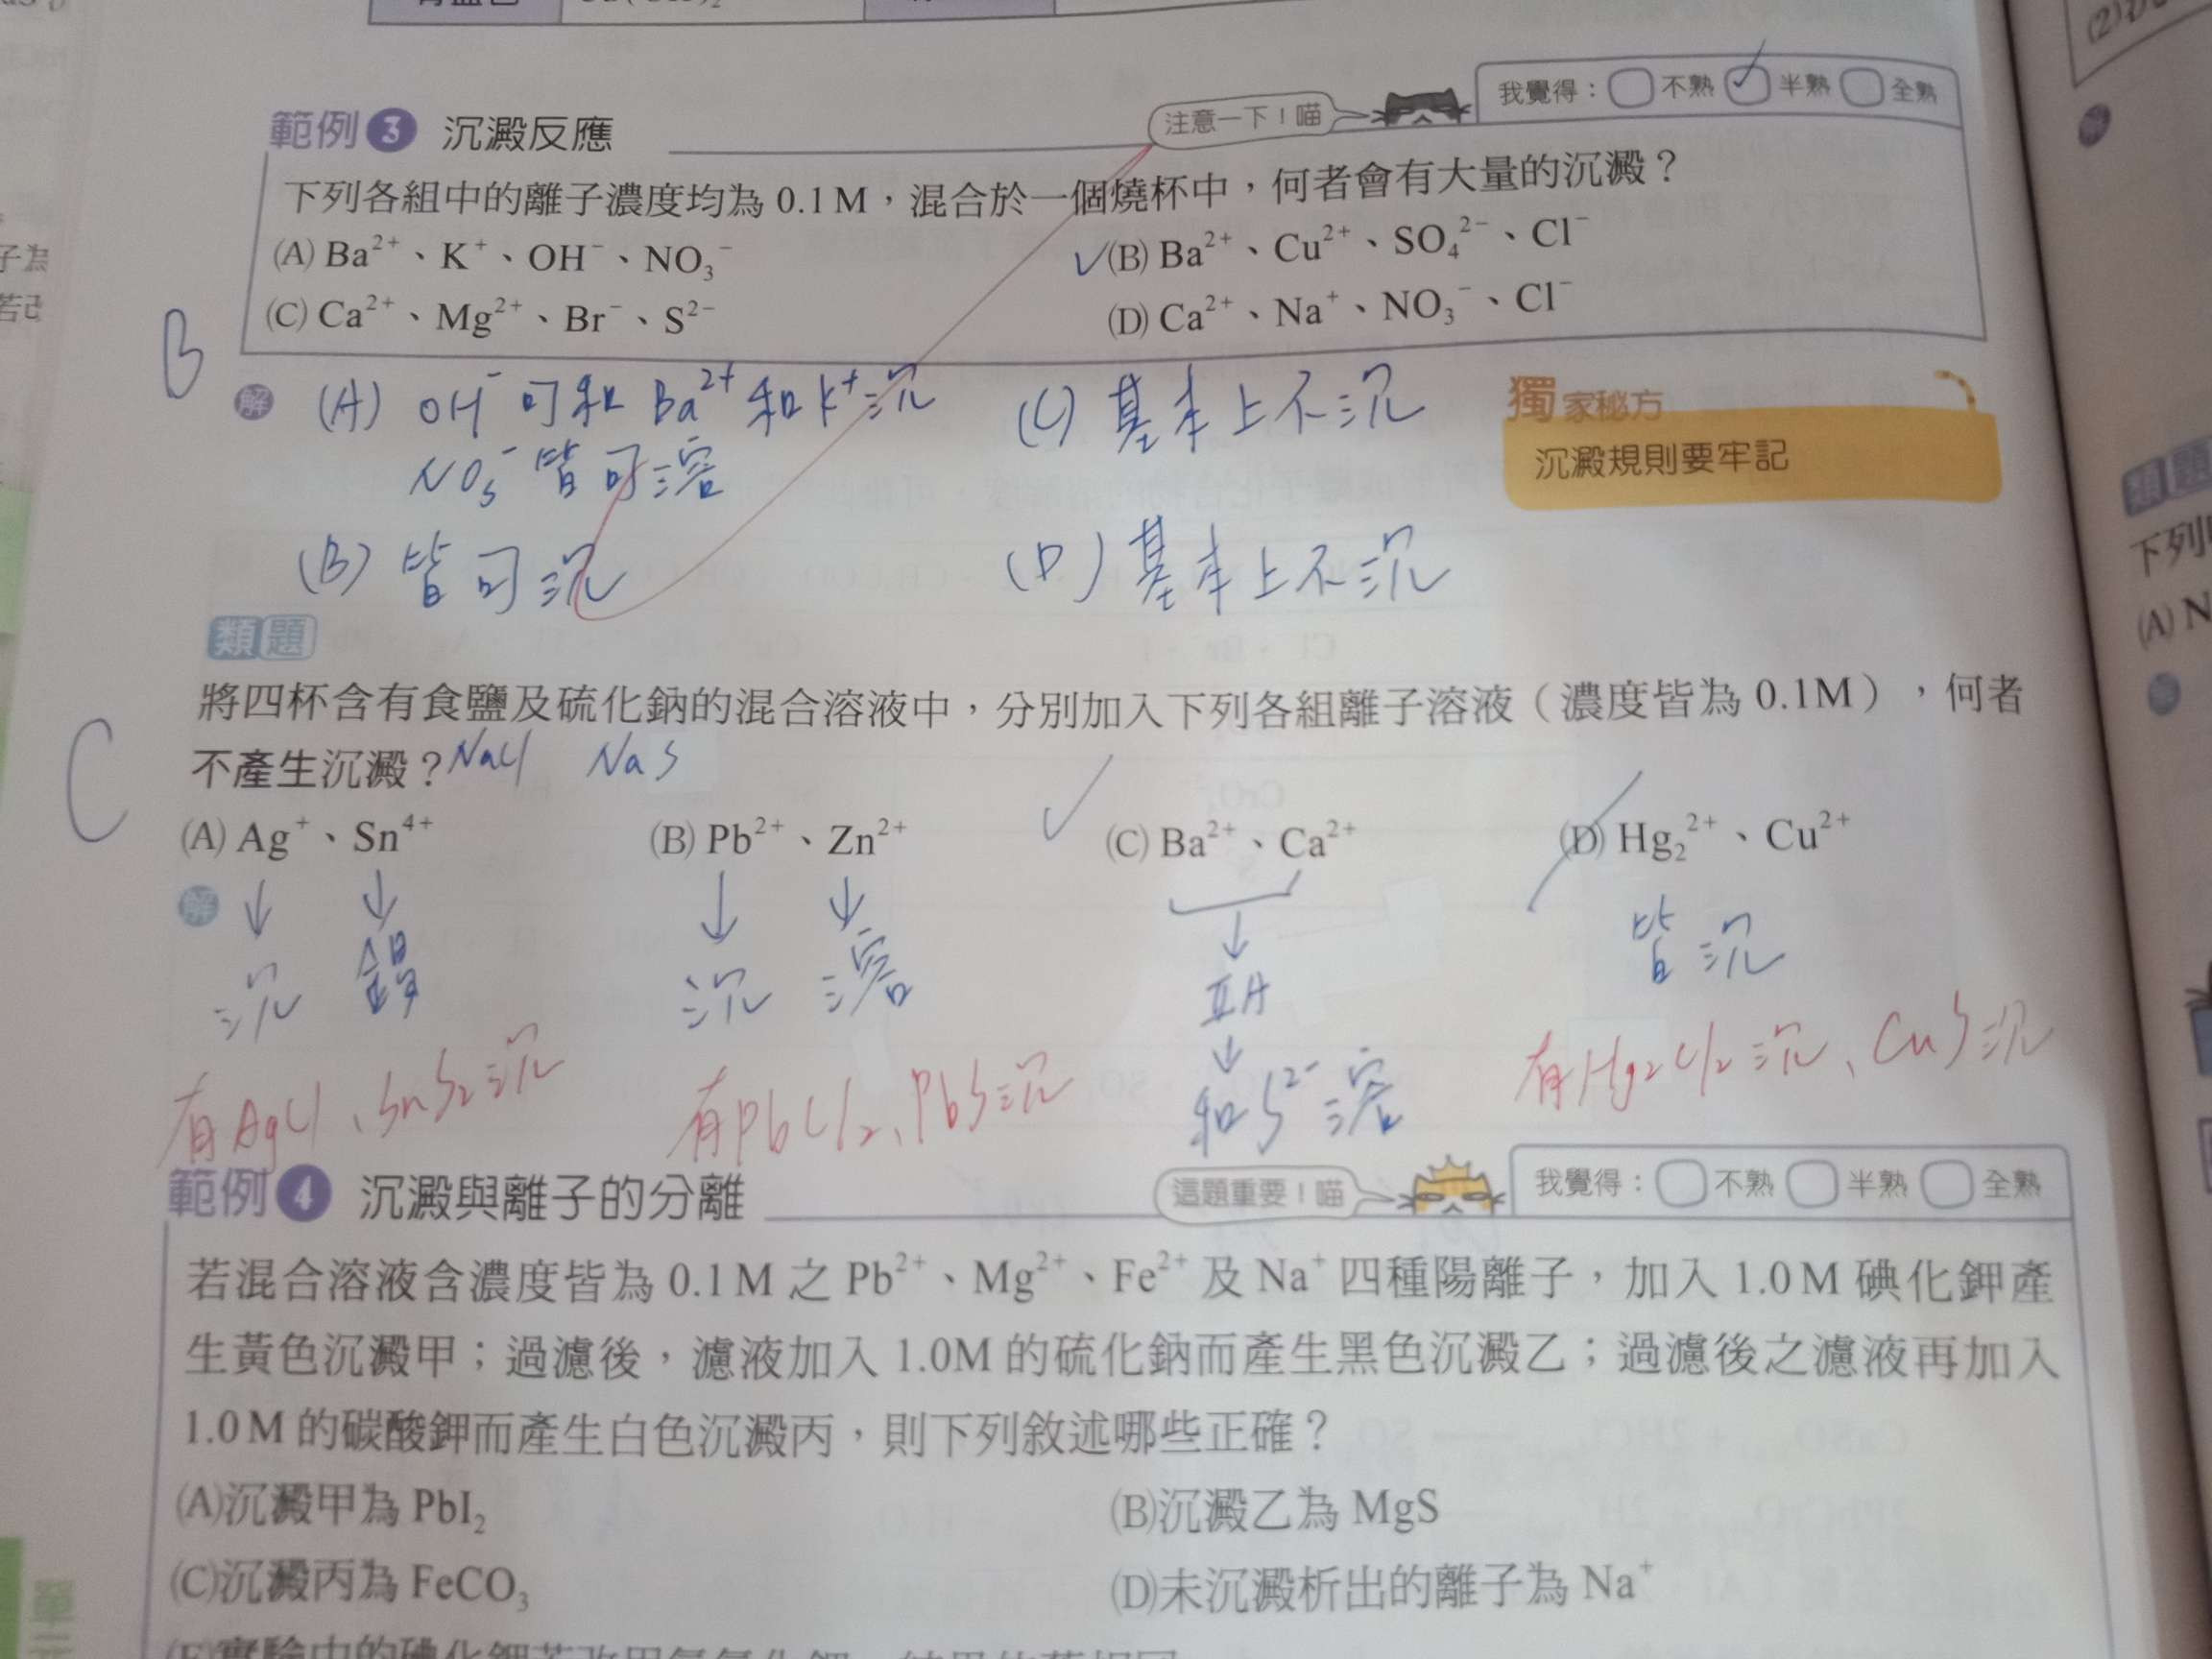 我覺得：不熟 半熟 全熟
注意一下！喵
範例3 沉澱反應
下列各組中的離子濃度均為 0.1 M，混合於一個燒杯中，何者會有大量的沉澱？
(A) Ba²⁺、K⁺、OH⁻、NO₃⁻ (B) Ba²⁺、Cu²⁺、SO₄²⁻、Cl⁻
(C) Ca²⁺、Mg²⁺、Br⁻、S²⁻ (D) Ca²⁺、Na⁺、NO₃⁻、Cl⁻
B
解 (A) OH⁻可和 Ba²⁺和 K⁺沉 (C) 基本上不沉
NO₃⁻皆可溶
獨家秘方
沉澱規則要牢記
(B) 皆可沉 (D) 基本上不沉
類題
將四杯含有食鹽及硫化鈉的混合溶液中，分別加入下列各組離子溶液（濃度皆為 0.1M），何者
不產生沉澱？NaCl NaS
C
(A) Ag⁺、Sn⁴⁺ (B) Pb²⁺、Zn²⁺ (C) Ba²⁺、Ca²⁺ (D) Hg₂²⁺、Cu²⁺
解 ↓ ↓ ↓ ↓ ↓ 皆沉
沉 錫 沉 溶 ⅡA
↓
和S²⁻溶
有AgCl、SnS₂沉 有PbCl₂、PbS沉 有Hg₂Cl₂沉、CuS沉
我覺得：不熟 半熟 全熟
這題重要！喵
範例4 沉澱與離子的分離
若混合溶液含濃度皆為 0.1 M 之 Pb²⁺、Mg²⁺、Fe²⁺ 及 Na⁺ 四種陽離子，加入 1.0 M 碘化鉀產
生黃色沉澱甲；過濾後，濾液加入 1.0M 的硫化鈉而產生黑色沉澱乙；過濾後之濾液再加入
1.0 M 的碳酸鉀而產生白色沉澱丙，則下列敘述哪些正確？
(A)沉澱甲為 PbI₂ (B)沉澱乙為 MgS
(C)沉澱丙為 FeCO₃ (D)未沉澱析出的離子為 Na⁺
類題
下列
(A) N
單元